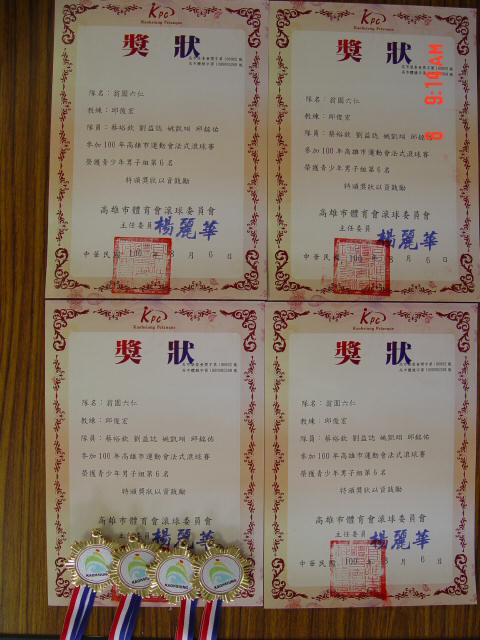 KPC
Kaohsiung Petanque
獎狀
隊名：翁園六仁
教練：邱俊宏
隊員：蔡裕欽 劉益誌 姚凱頌 邱銘佑
參加100年高雄市運動會法式滾球賽
榮獲青少年男子組第6名
特頒獎狀以資鼓勵
高雄市體育會滾球委員會
主任委員 楊麗華
中華民國 100 年 8 月 6 日
KPC
Kaohsiung Petanque
獎狀
隊名：翁園六仁
教練：邱俊宏
隊員：蔡裕欽 劉益誌 姚凱頌 邱銘佑
參加100年高雄市運動會法式滾球賽
榮獲青少年男子組第6名
特頒獎狀以資鼓勵
高雄市體育會滾球委員會
主任委員 楊麗華
中華民國 100 年 8 月 6 日
9:14 AM
KPC
Kaohsiung Petanque
獎狀
隊名：翁園六仁
教練：邱俊宏
隊員：蔡裕欽 劉益誌 姚凱頌 邱銘佑
參加100年高雄市運動會法式滾球賽
榮獲青少年男子組第6名
特頒獎狀以資鼓勵
高雄市體育會滾球委員會
主任委員 楊麗華
KPC
Kaohsiung Petanque
獎狀
隊名：翁園六仁
教練：邱俊宏
隊員：蔡裕欽 劉益誌 姚凱頌 邱銘佑
參加100年高雄市運動會法式滾球賽
榮獲青少年男子組第6名
特頒獎狀以資鼓勵
高雄市體育會滾球委員會
主任委員 楊麗華
中華民國 100 年 8 月 6 日
KAOHSIUNG
KAOHSIUNG
KAOHSIUNG
KAOHSIUNG